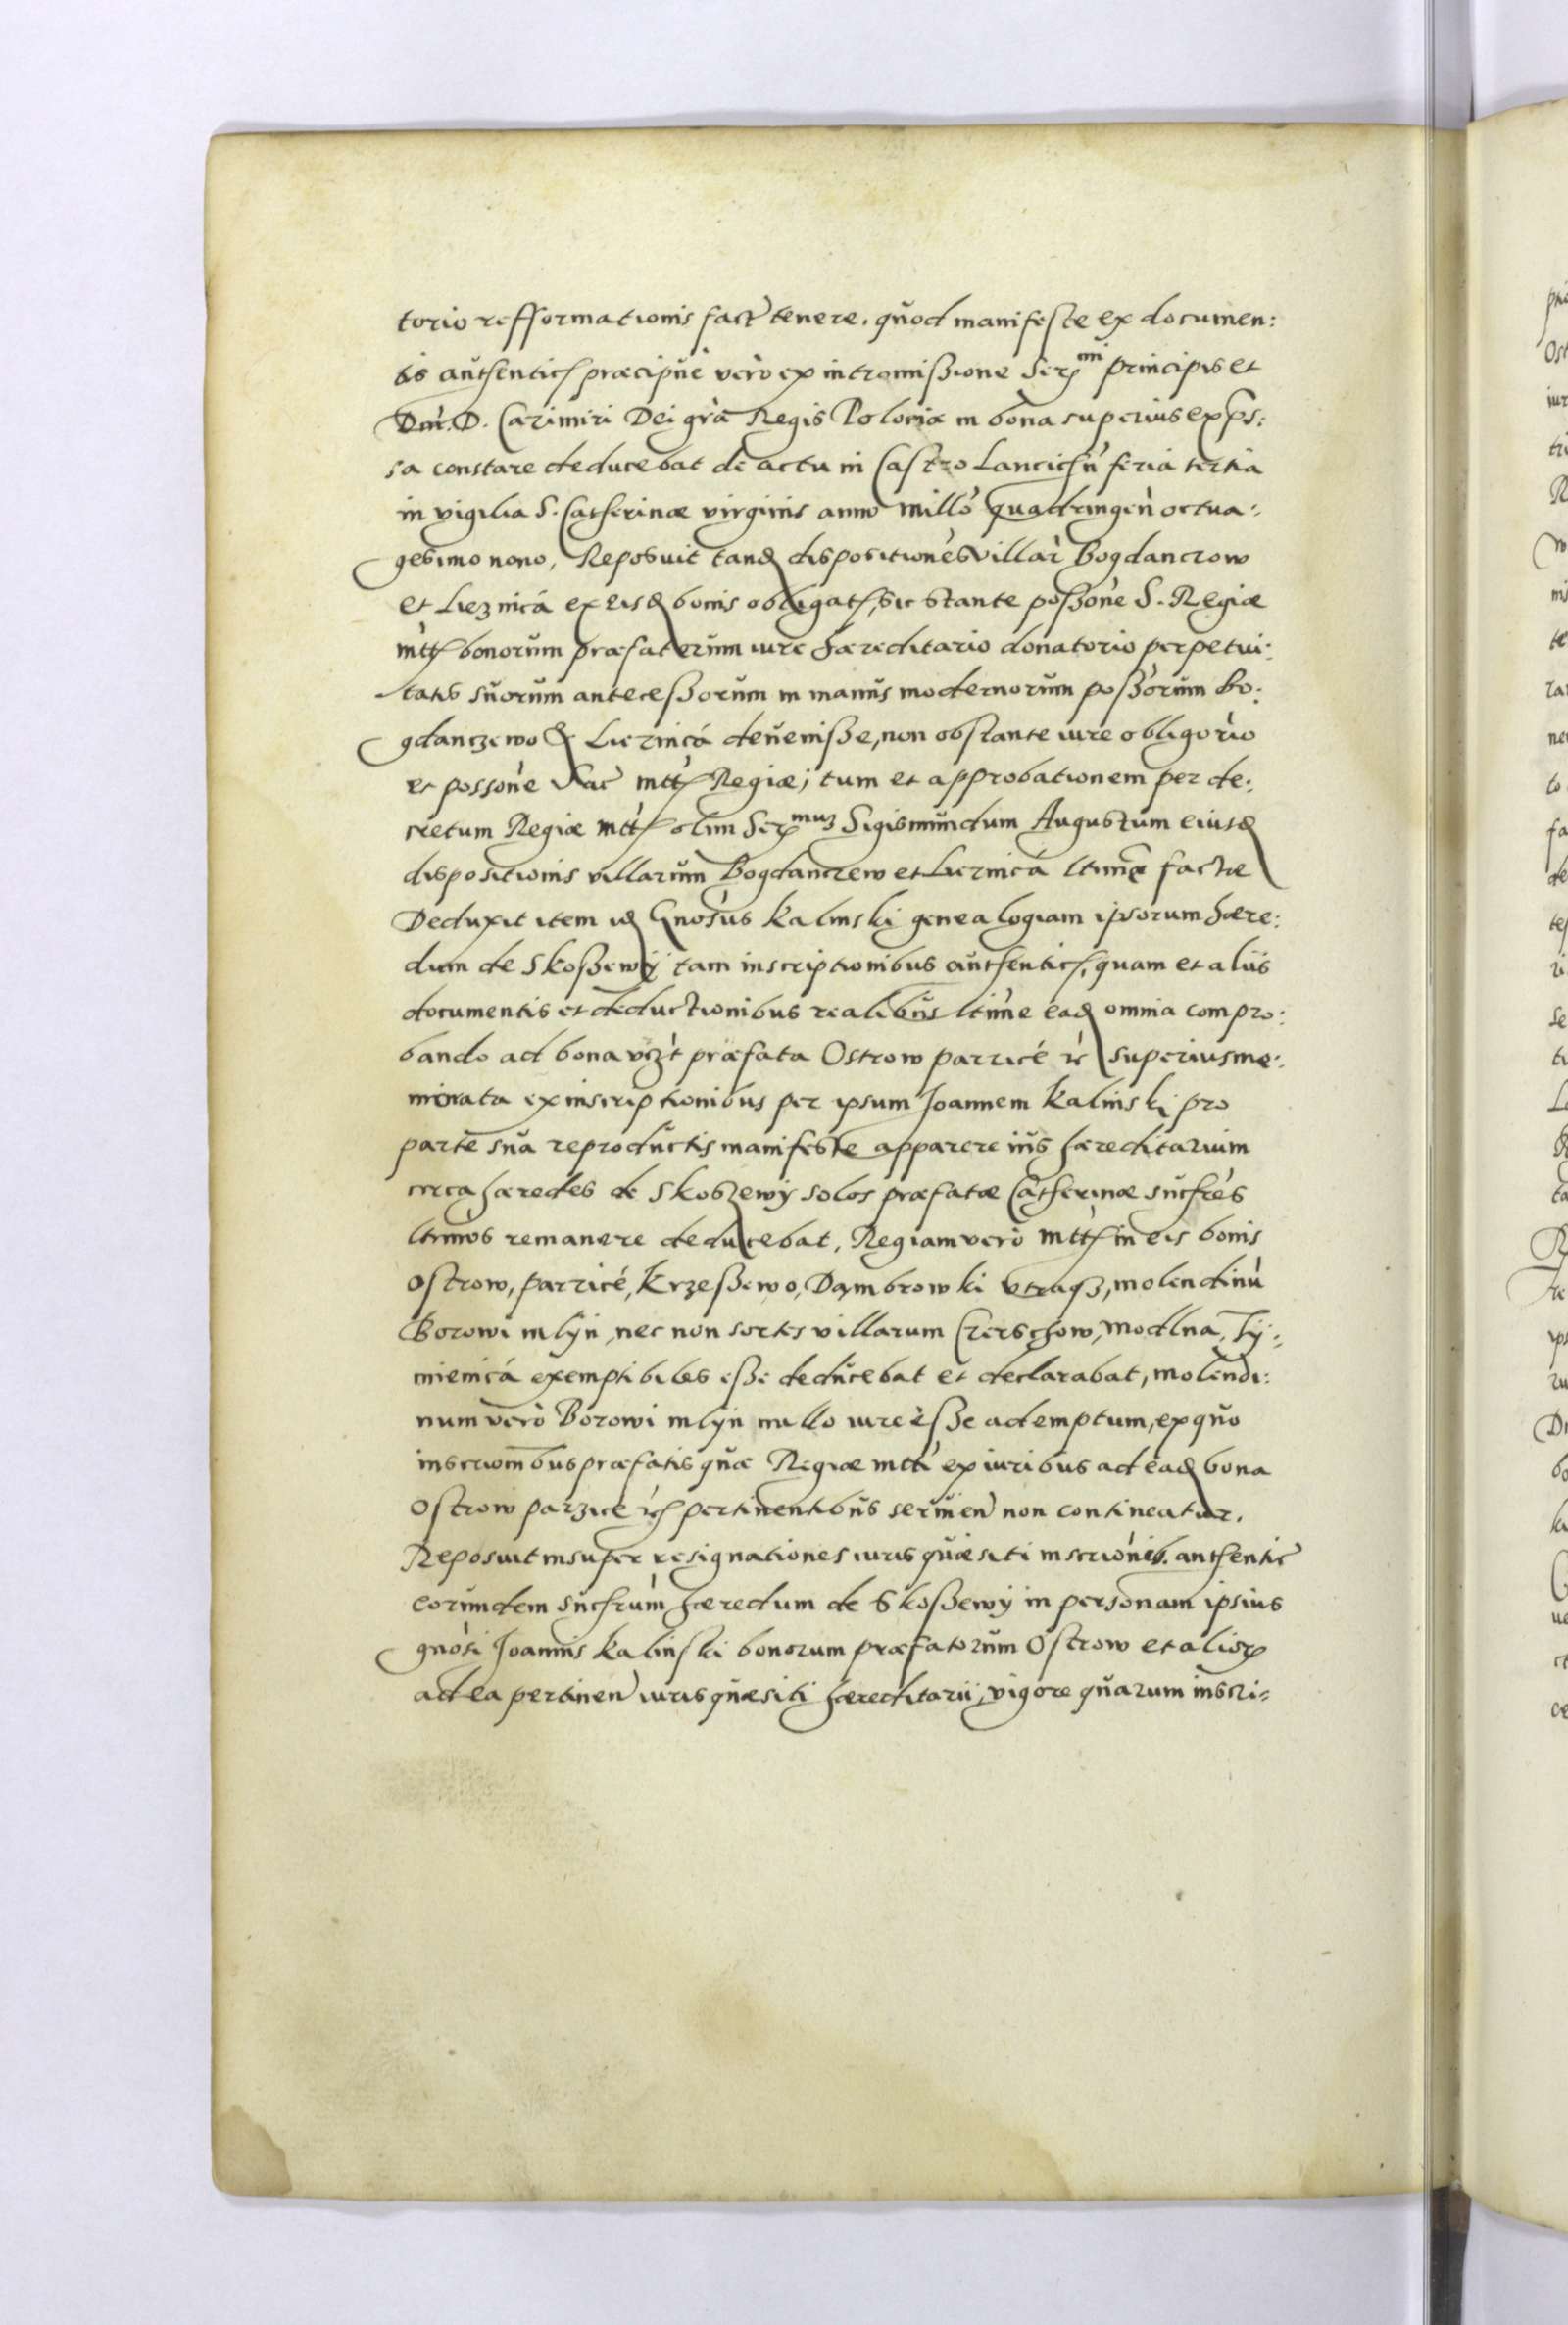 torio refformationis fact̀ tenere. quod manifeste ex documen:
tis authentic̀ præcipue vero ex intromißione Ser^mi principis et
Dni. D. Cazimiri Dei grã Regis Poloniæ in bona superius exp̃s:
sa constare deducebat de actu in Castro Lancicien̄ feria tertia
in vigilia S. Catherinæ virginis anno millo quadringen̄ octua:
gesimo nono, Reposuit tand dispositiones villar̀ Bogdanczow
et Lieznicá ex eisd bonis obligat, sic stante poßone S. Regiæ
mtt bonorum præfatorum iure hæreditario donatorio perpetui:
tatis suorum antecessorum in manus modernorum poßorum Bo:
gdanczewo & Lieznicá devenisse, non obstante iure obligorio
et possone Sac mtt Regiæ; tum et approbationem per de:
cretum Regiæ mtt olim Ser^mum Sigismundum Augustum eiusd
dispositionis villarum Bogdanczew et Lieznicá ltime factæ
Deduxit item id Gnosus Kalinski genealogiam ipsorum hære:
dum de Skoßewy tam inscriptionibus authentic, quam et aliis
documentis et deductionibus realibus ltime ead omnia compro:
bando ad bona vzt præfata Ostrow parzicé etc superius me:
morata ex inscriptionibus per ipsum Joannem Kalinski pro
parte sua reproductis manifeste apparere ius hæreditarium
circa hæredes de Skoszewy solos præfatæ Catherinæ sucſres
ltimos remanere deducebat, Regiam vero mtt in eis bonis
Ostrow, parzicé, Krzeßewo, Dąmbrowki utraq, molendinu
Borowi mlyn, nec non sortes villarum Czerschow, modlna, Ty:
mienicá exemptibiles esse deducebat et declarabat, molendi:
num vero Borowi mlyn nullo iure esse ademptum, ex quo
inscrionibus præfatis quæ Regiæ mtti ex iuribus ad ead bona
Ostrow parzice etc pertinentibus servien̄ non contineatur.
Reposuit insuper resignationes iuris quæsiti inscrionib. authentic̀
eorundem sucſrum hæredum de Skoßewy in personam ipsius
gnosi Joannis Kalinski bonorum præfatorum Ostrow et alior
ad ea pertinen̄ iuris quæsiti hæreditarii, vigore quarum inscri: